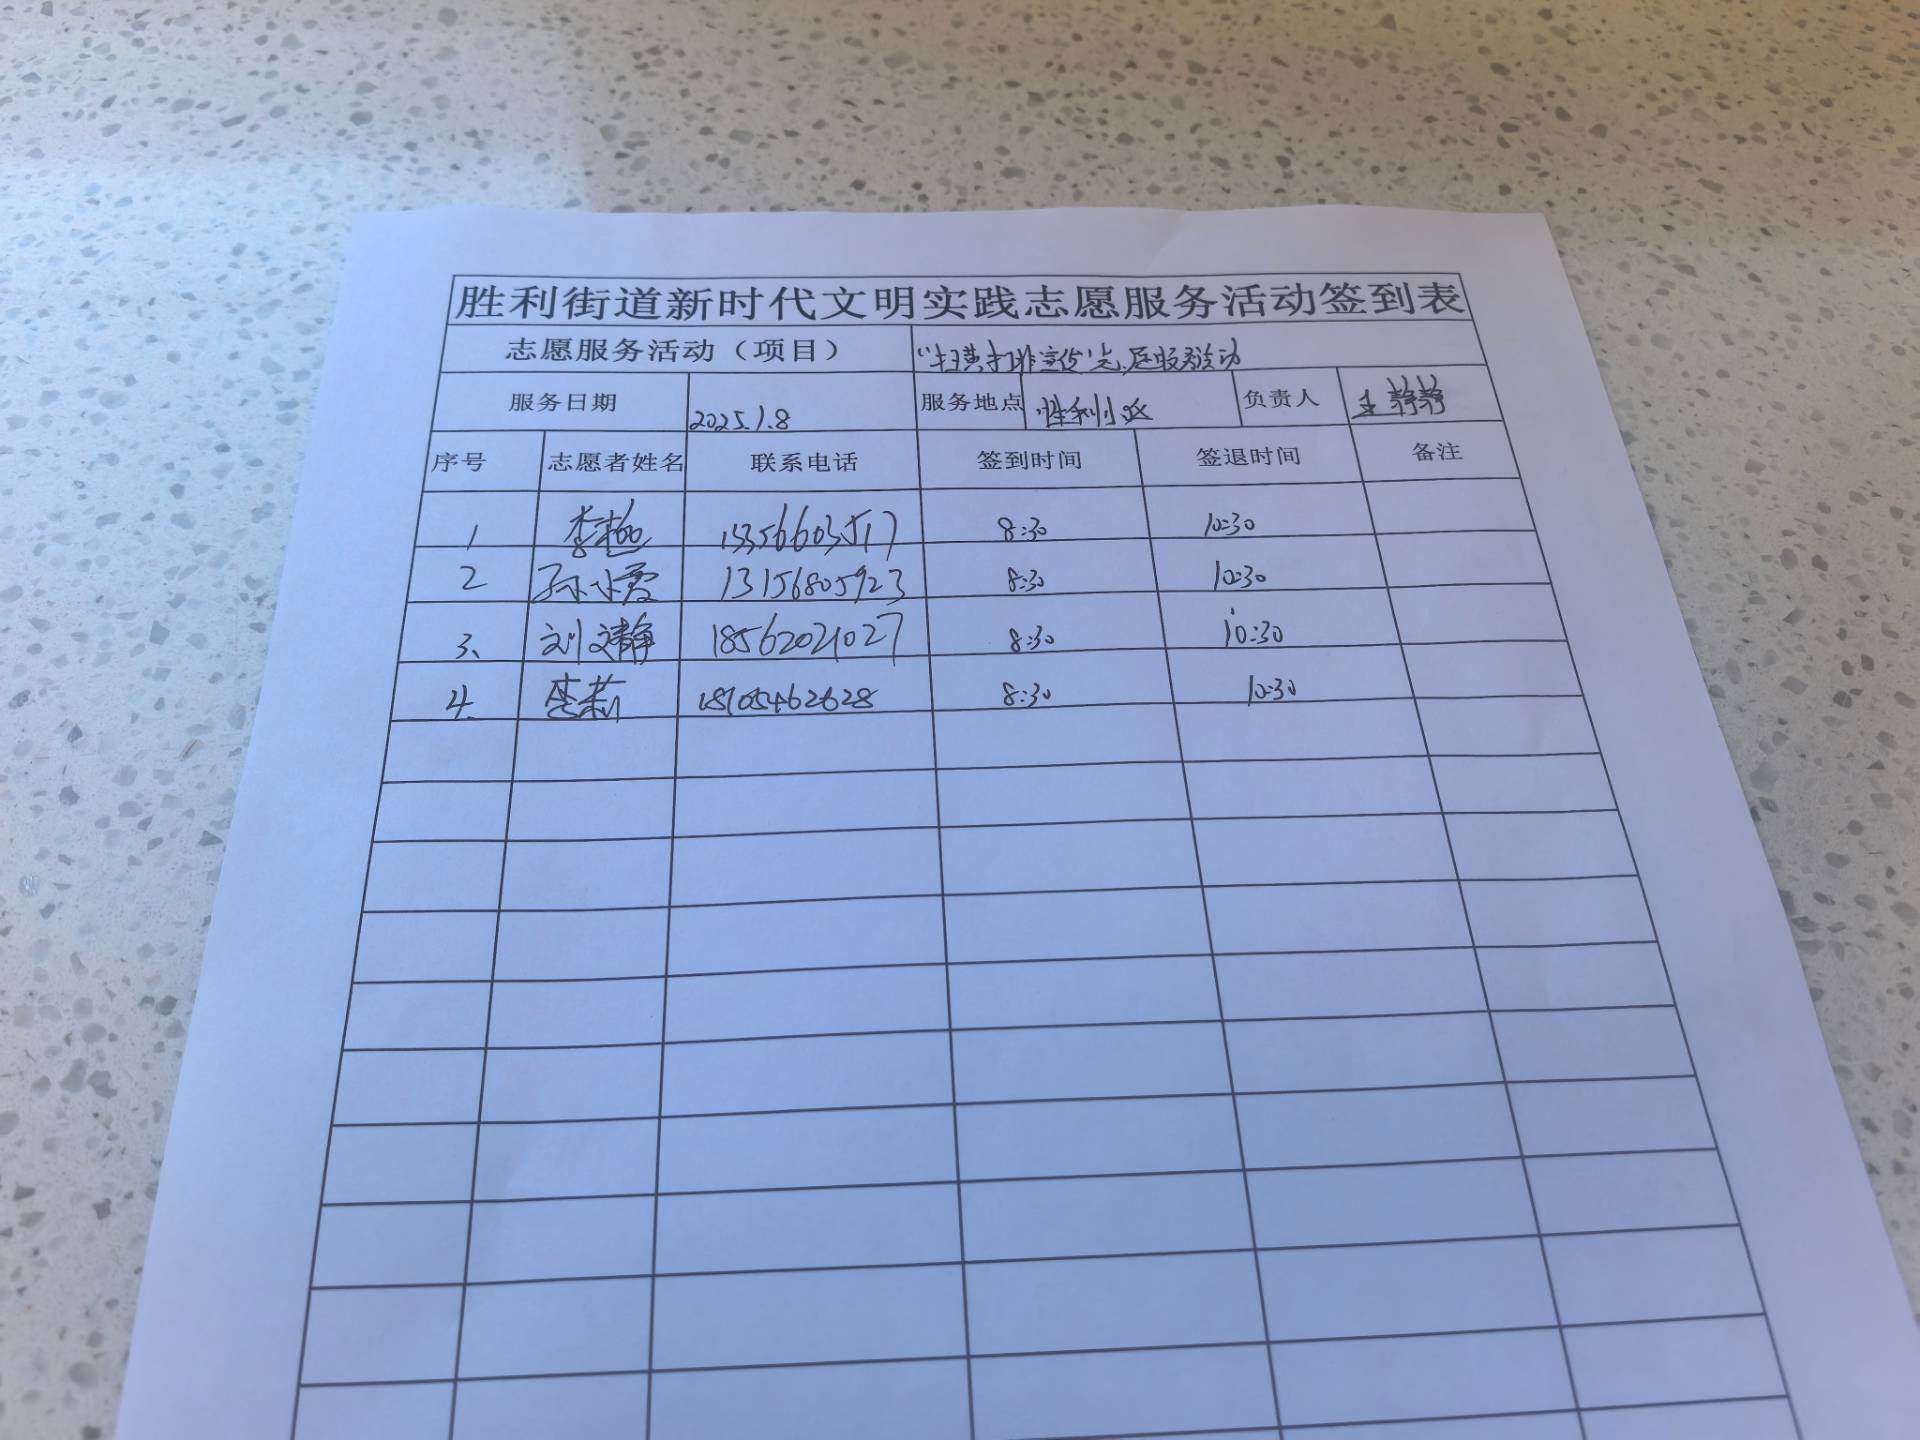 胜利街道新时代文明实践志愿服务活动签到表
志愿服务活动（项目） “扫黄打非宣传”志愿服务活动
服务日期 2025.1.8 服务地点 胜利小区 负责人 王静静
序号 志愿者姓名 联系电话 签到时间 签退时间 备注
1 李艳 15356603517 8:30 10:30
2 孙小霞 13156805923 8:30 10:30
3、 刘文静 18562021027 8:30 10:30
4. 李莉 8:30 10:30